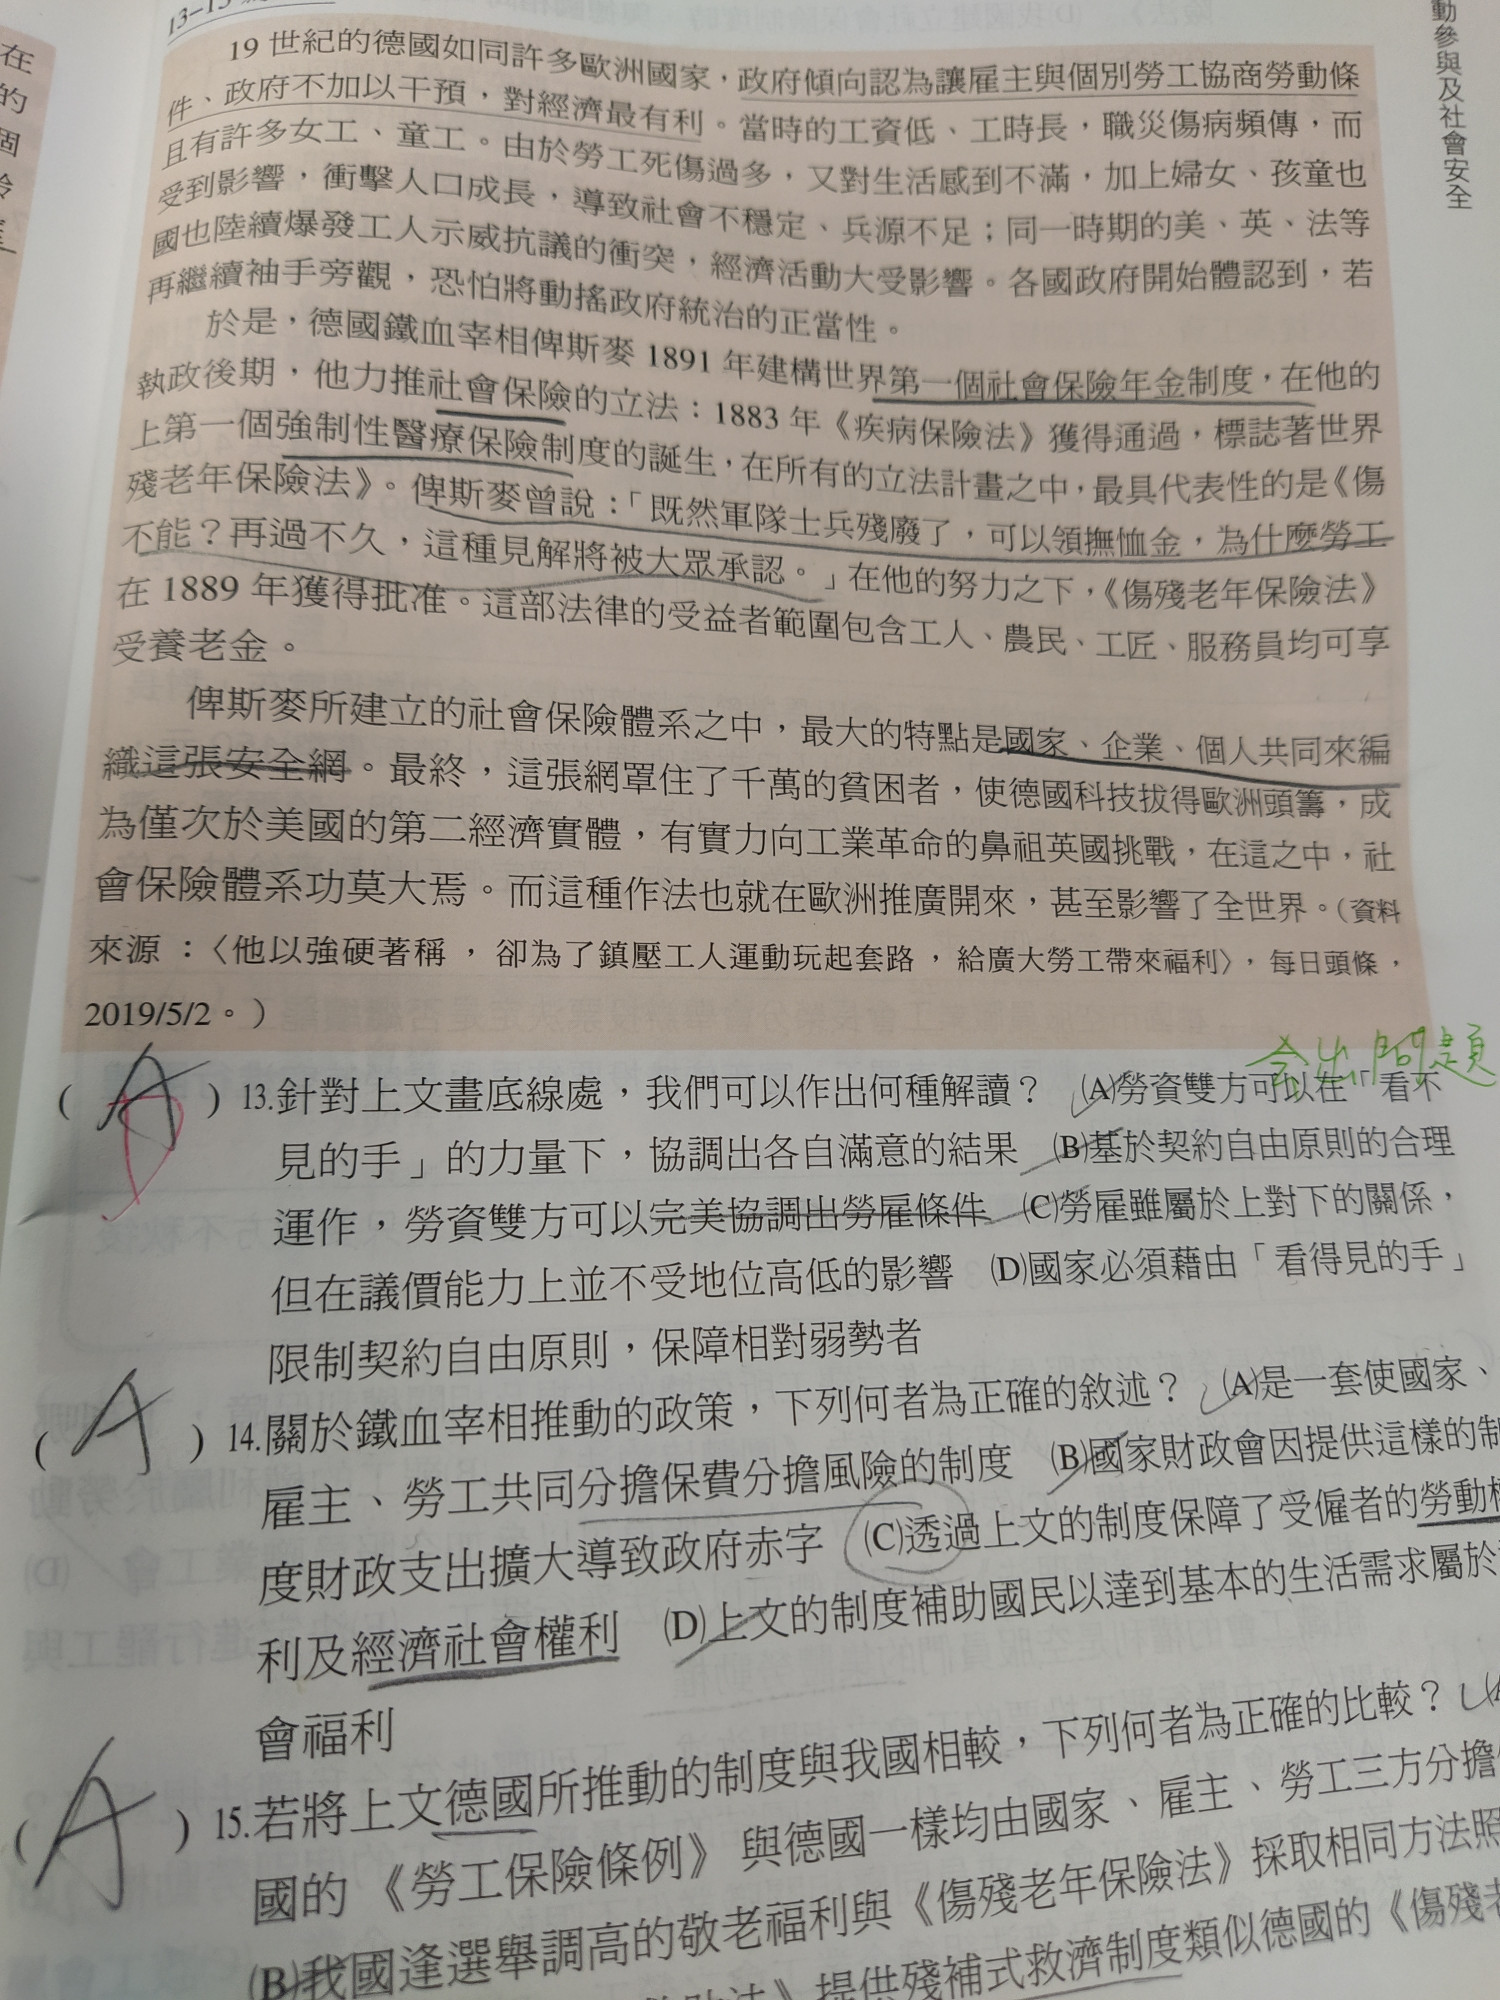 13–15
19 世紀的德國如同許多歐洲國家，政府傾向認為讓雇主與個別勞工協商勞動條
件、政府不加以干預，對經濟最有利。當時的工資低、工時長，職災傷病頻傳，而
且有許多女工、童工。由於勞工死傷過多，又對生活感到不滿，加上婦女、孩童也
受到影響，衝擊人口成長，導致社會不穩定、兵源不足；同一時期的美、英、法等
國也陸續爆發工人示威抗議的衝突，經濟活動大受影響。各國政府開始體認到，若
再繼續袖手旁觀，恐怕將動搖政府統治的正當性。
於是，德國鐵血宰相俾斯麥 1891 年建構世界第一個社會保險年金制度，在他的
執政後期，他力推社會保險的立法：1883 年《疾病保險法》獲得通過，標誌著世界
上第一個強制性醫療保險制度的誕生，在所有的立法計畫之中，最具代表性的是《傷
殘老年保險法》。俾斯麥曾說：「既然軍隊士兵殘廢了，可以領撫恤金，為什麼勞工
不能？再過不久，這種見解將被大眾承認。」在他的努力之下，《傷殘老年保險法》
在 1889 年獲得批准。這部法律的受益者範圍包含工人、農民、工匠、服務員均可享
受養老金。
俾斯麥所建立的社會保險體系之中，最大的特點是國家、企業、個人共同來編
織這張安全網。最終，這張網罩住了千萬的貧困者，使德國科技拔得歐洲頭籌，成
為僅次於美國的第二經濟實體，有實力向工業革命的鼻祖英國挑戰，在這之中，社
會保險體系功莫大焉。而這種作法也就在歐洲推廣開來，甚至影響了全世界。（資料
來源：〈他以強硬著稱，卻為了鎮壓工人運動玩起套路，給廣大勞工帶來福利〉，每日頭條，
2019/5/2。）
會出問題
( A D ) 13.針對上文畫底線處，我們可以作出何種解讀？ (A)勞資雙方可以在「看不
見的手」的力量下，協調出各自滿意的結果 (B)基於契約自由原則的合理
運作，勞資雙方可以完美協調出勞雇條件 (C)勞雇雖屬於上對下的關係，
但在議價能力上並不受地位高低的影響 (D)國家必須藉由「看得見的手」
限制契約自由原則，保障相對弱勢者
( A ) 14.關於鐵血宰相推動的政策，下列何者為正確的敘述？ (A)是一套使國家、
雇主、勞工共同分擔保費分擔風險的制度 (B)國家財政會因提供這樣的制
度財政支出擴大導致政府赤字 (C)透過上文的制度保障了受僱者的勞動權
利及經濟社會權利 (D)上文的制度補助國民以達到基本的生活需求屬於
會福利
( A ) 15.若將上文德國所推動的制度與我國相較，下列何者為正確的比較？ (A
國的《勞工保險條例》與德國一樣均由國家、雇主、勞工三方分擔
(B)我國逢選舉調高的敬老福利與《傷殘老年保險法》採取相同方法照
提供殘補式救濟制度類似德國的《傷殘老
動參與及社會安全
在
的
個